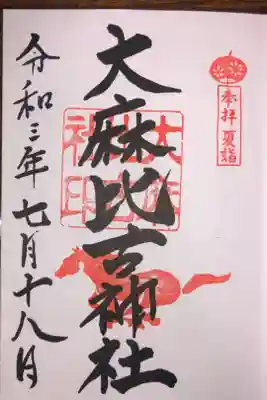 奉拝 夏詣
大麻比古神社
令和三年七月十八日